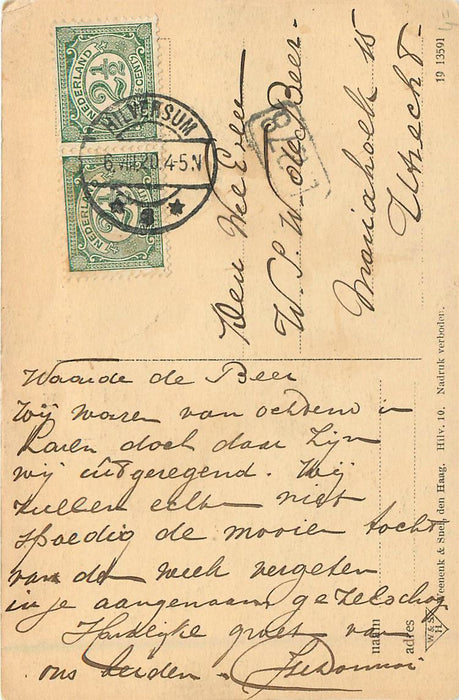 Waarde de Beer
Wij waren van ochtend in
Laren doch daar zijn
wij uitgeregend. Wij
zullen echter niet
spoedig de mooien tocht
van der week vergeten
in je aangenaam gezelschap
Hartelijke groet van
ons beiden
Den Wel Ed
W. S. W. de Beer
Mariahoek 15
Utrecht
NEDERLAND
2½
CENT
NEDERLAND
2½
HILVERSUM
6. 20. 4-5.N
a
naam
adres
W & S
H
Weenenk & Snel, den Haag, Hilv. 10. Nadruk verboden.
19 13591